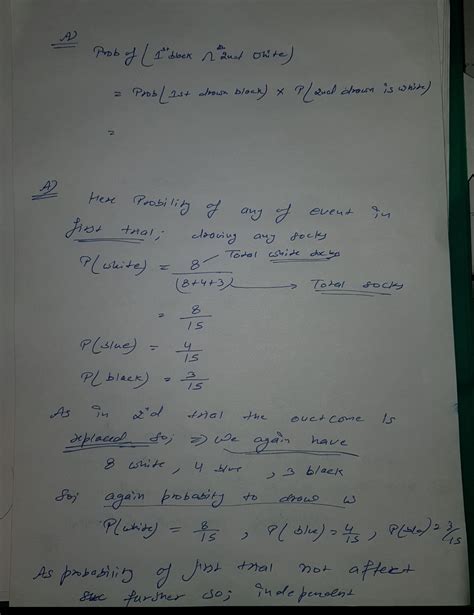 A)
Prob of (1st black ∩ 2nd white)
= Prob (1st drawn black) × P(2nd drawn is white)
=
A) Here Probility of any of event in
first trial; drawing any socks
P(white) = 8/(8+4+3) Total white socks → Total socks
= 8/15
P(Blue) = 4/15
P(black) = 3/15
As in 2'd trial the outcome Is
replaced So; ⇒ we again have
8 white, 4 blue, 3 black
So; again probabity to draw w
P(white) = 8/15, P(blue) = 4/15, P(blac) = 3/15
As probability of first trial not affect
further so; independent